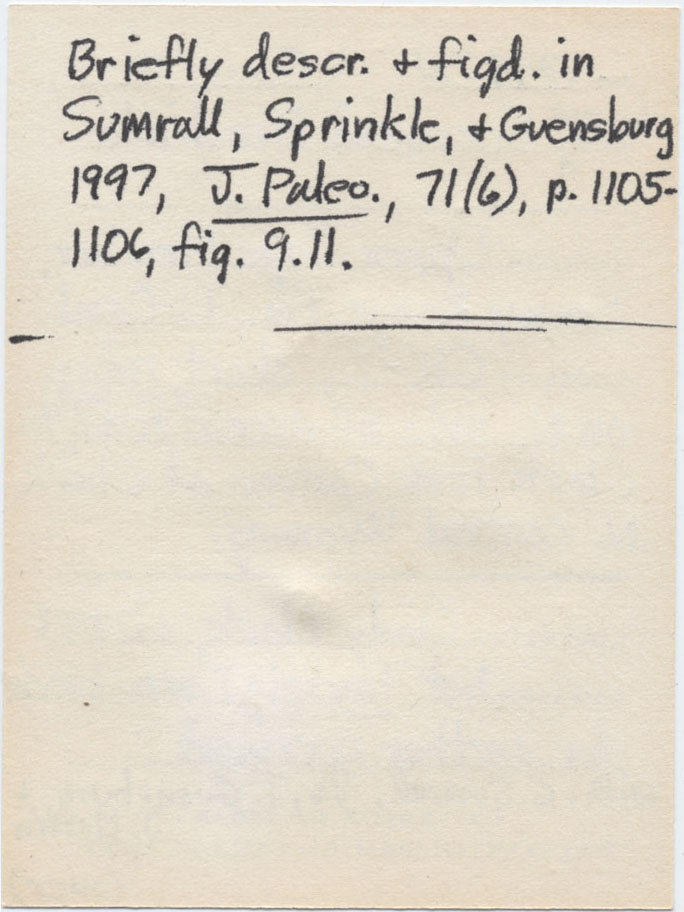 Briefly descr. + figd. in
Sumrall, Sprinkle, + Guensburg
1997, J. Paleo., 71(6), p. 1105-
1106, fig. 9.11.